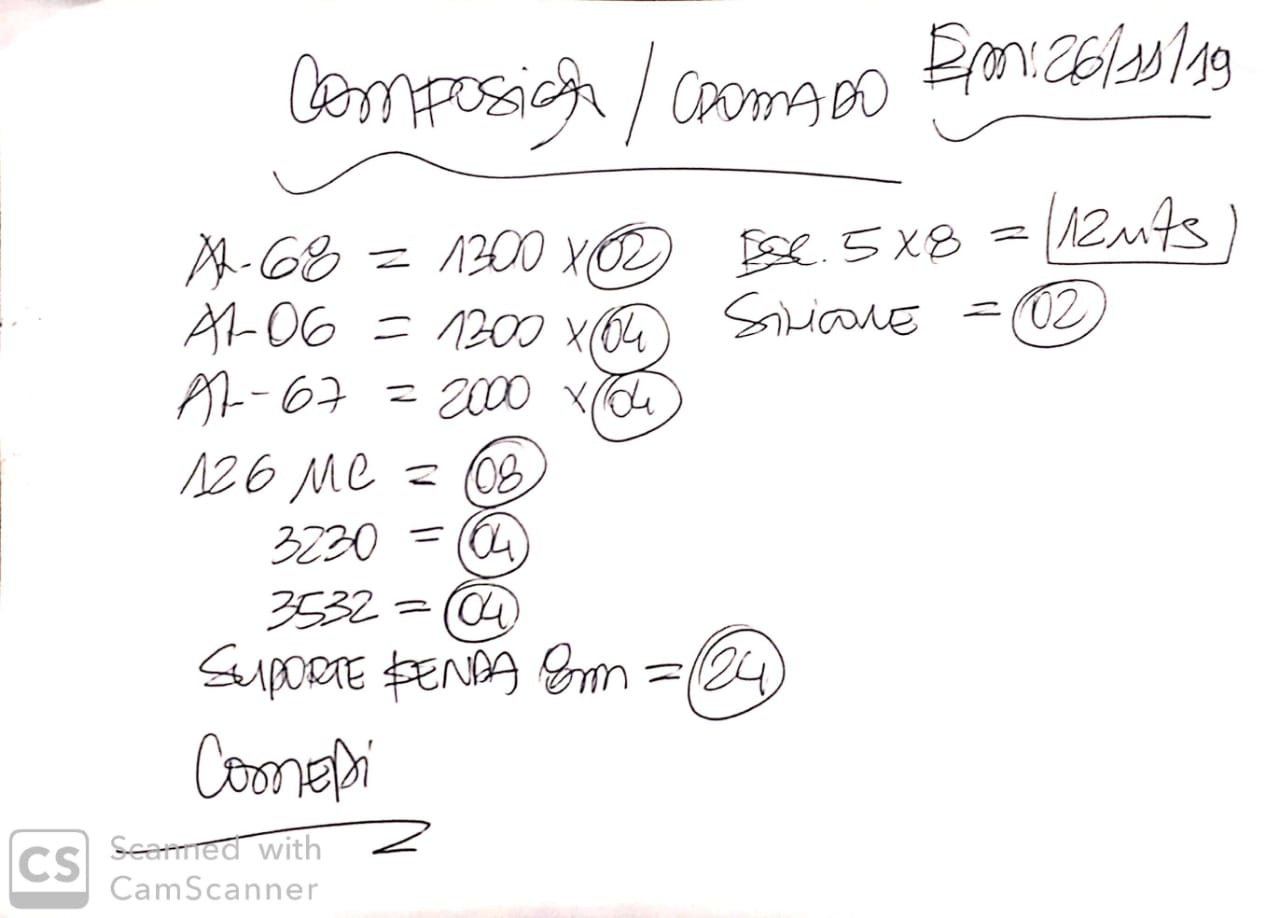 Composição / CROMADO Em: 26/11/19
AL-68 = 1300 x 02
AL-06 = 1300 x 04
AL-67 = 2000 x 04
126 MC = 08
3230 = 04
3532 = 04
SUPORTE FENDA 8mm = 24
Esc. 5 x 8 = 12 MTS
SILICONE = 02
CS Scanned with
CamScanner